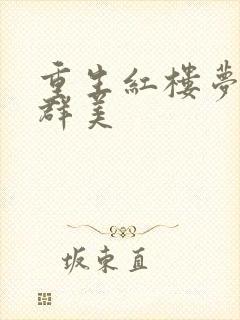 重生紅樓夢
群美
坂東直